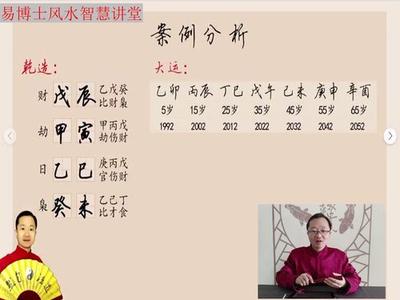 易博士风水智慧讲堂
案例分析
乾造:
财 戊 辰 乙戊癸
比财枭
劫 甲 寅 甲丙戊
劫伤财
日 乙 巳 庚丙戊
官伤财
枭 癸 未 乙己丁
比才食
大运:
乙卯 丙辰 丁巳 戊午 己未 庚申 辛酉
5岁 15岁 25岁 35岁 45岁 55岁 65岁
1992 2002 2012 2022 2032 2042 2052